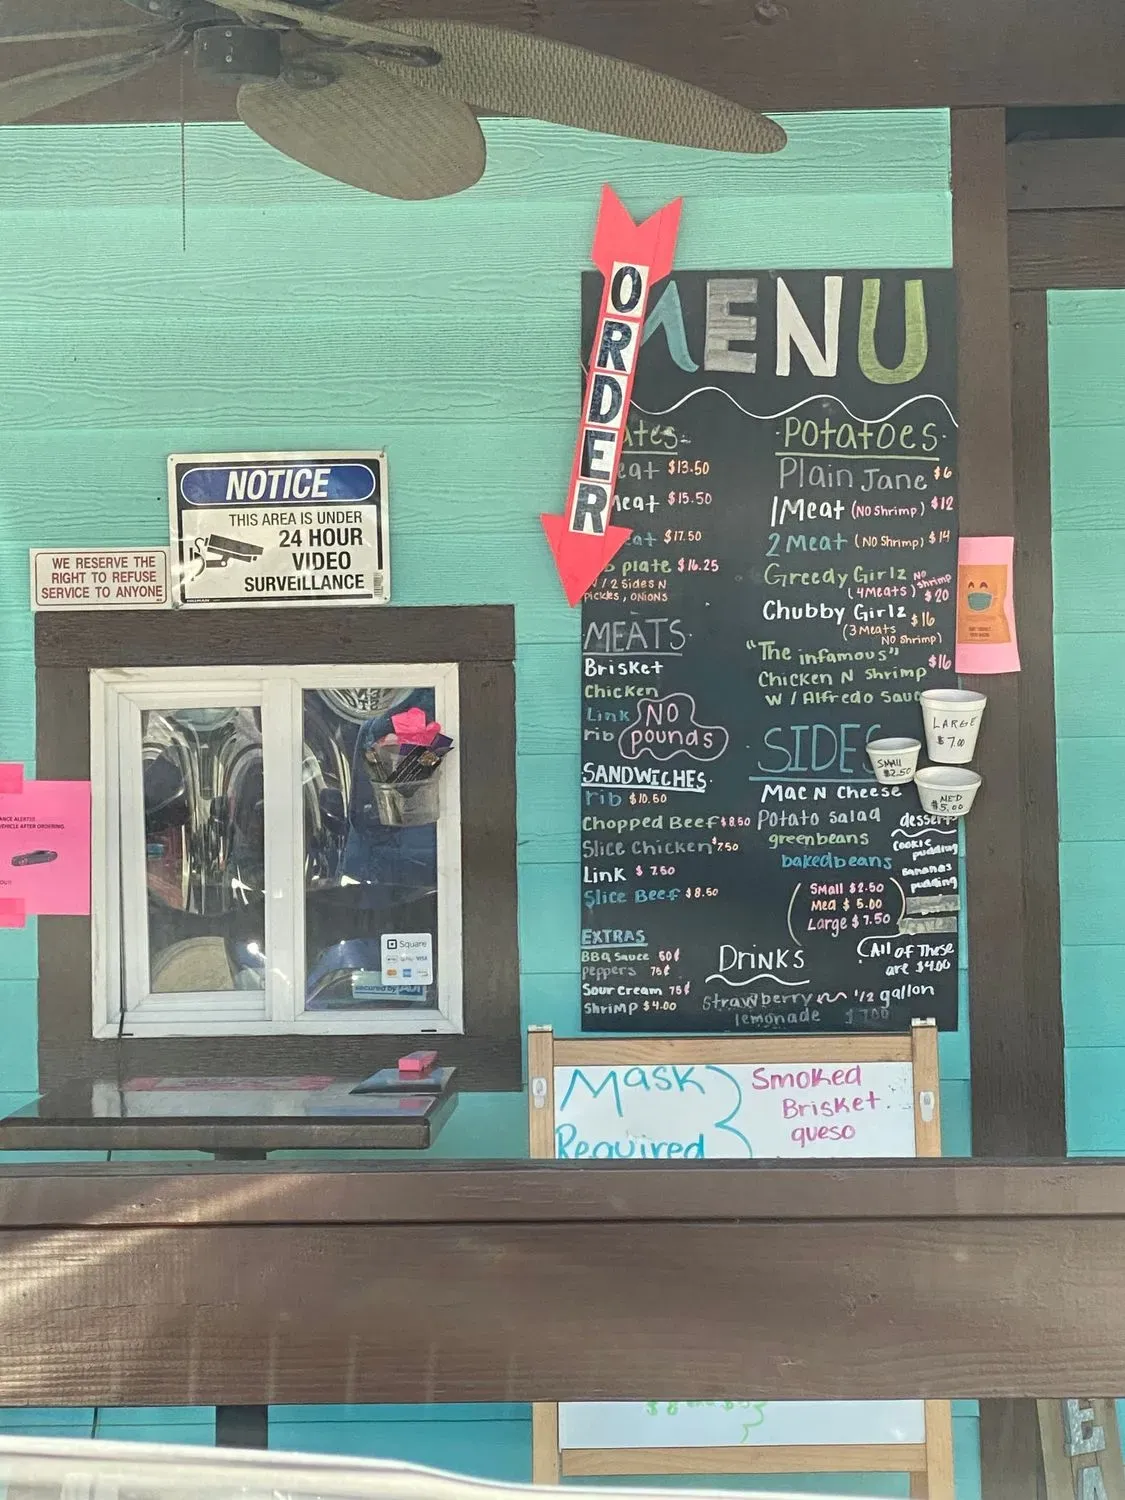 MENU
ORDER
NOTICE
THIS AREA IS UNDER
24 HOUR
VIDEO
SURVEILLANCE
WE RESERVE THE
RIGHT TO REFUSE
SERVICE TO ANYONE
VEHICLE AFTER ORDERING
$13.50
$15.50
$17.50
plate $16.25
/ 2 Sides N
pickles, ONIONS
MEATS
Brisket
Chicken
Link
rib
NO
pounds
SANDWICHES
rib $10.50
Chopped Beef $8.50
Slice Chicken $7.50
Link $ 7.50
Slice Beef $8.50
EXTRAS
BBQ Sauce 50¢
peppers 75¢
Sour cream 75¢
Shrimp $4.00
Potatoes
Plain Jane $6
1 Meat (NO Shrimp) $12
2 Meat (NO Shrimp) $14
Greedy Girlz NO Shrimp
(4 Meats) $20
Chubby Girlz $16
(3 Meats
NO Shrimp)
"The infamous"
Chicken N Shrimp $16
W / Alfredo Sauc
SIDES
LARGE
$7.00
SMALL
$2.50
MED
$5.00
Mac N Cheese
Potato Salad
greenbeans
bakedbeans
Small $2.50
Med $ 5.00
Large $7.50
desserts
Cookie
pudding
Bananas
pudding
(All of These
are $4.00
Drinks
Strawberry 1/2 gallon
lemonade $ 7.00
Square
VISA
secured by ADT
Mask
Required
Smoked
Brisket
queso